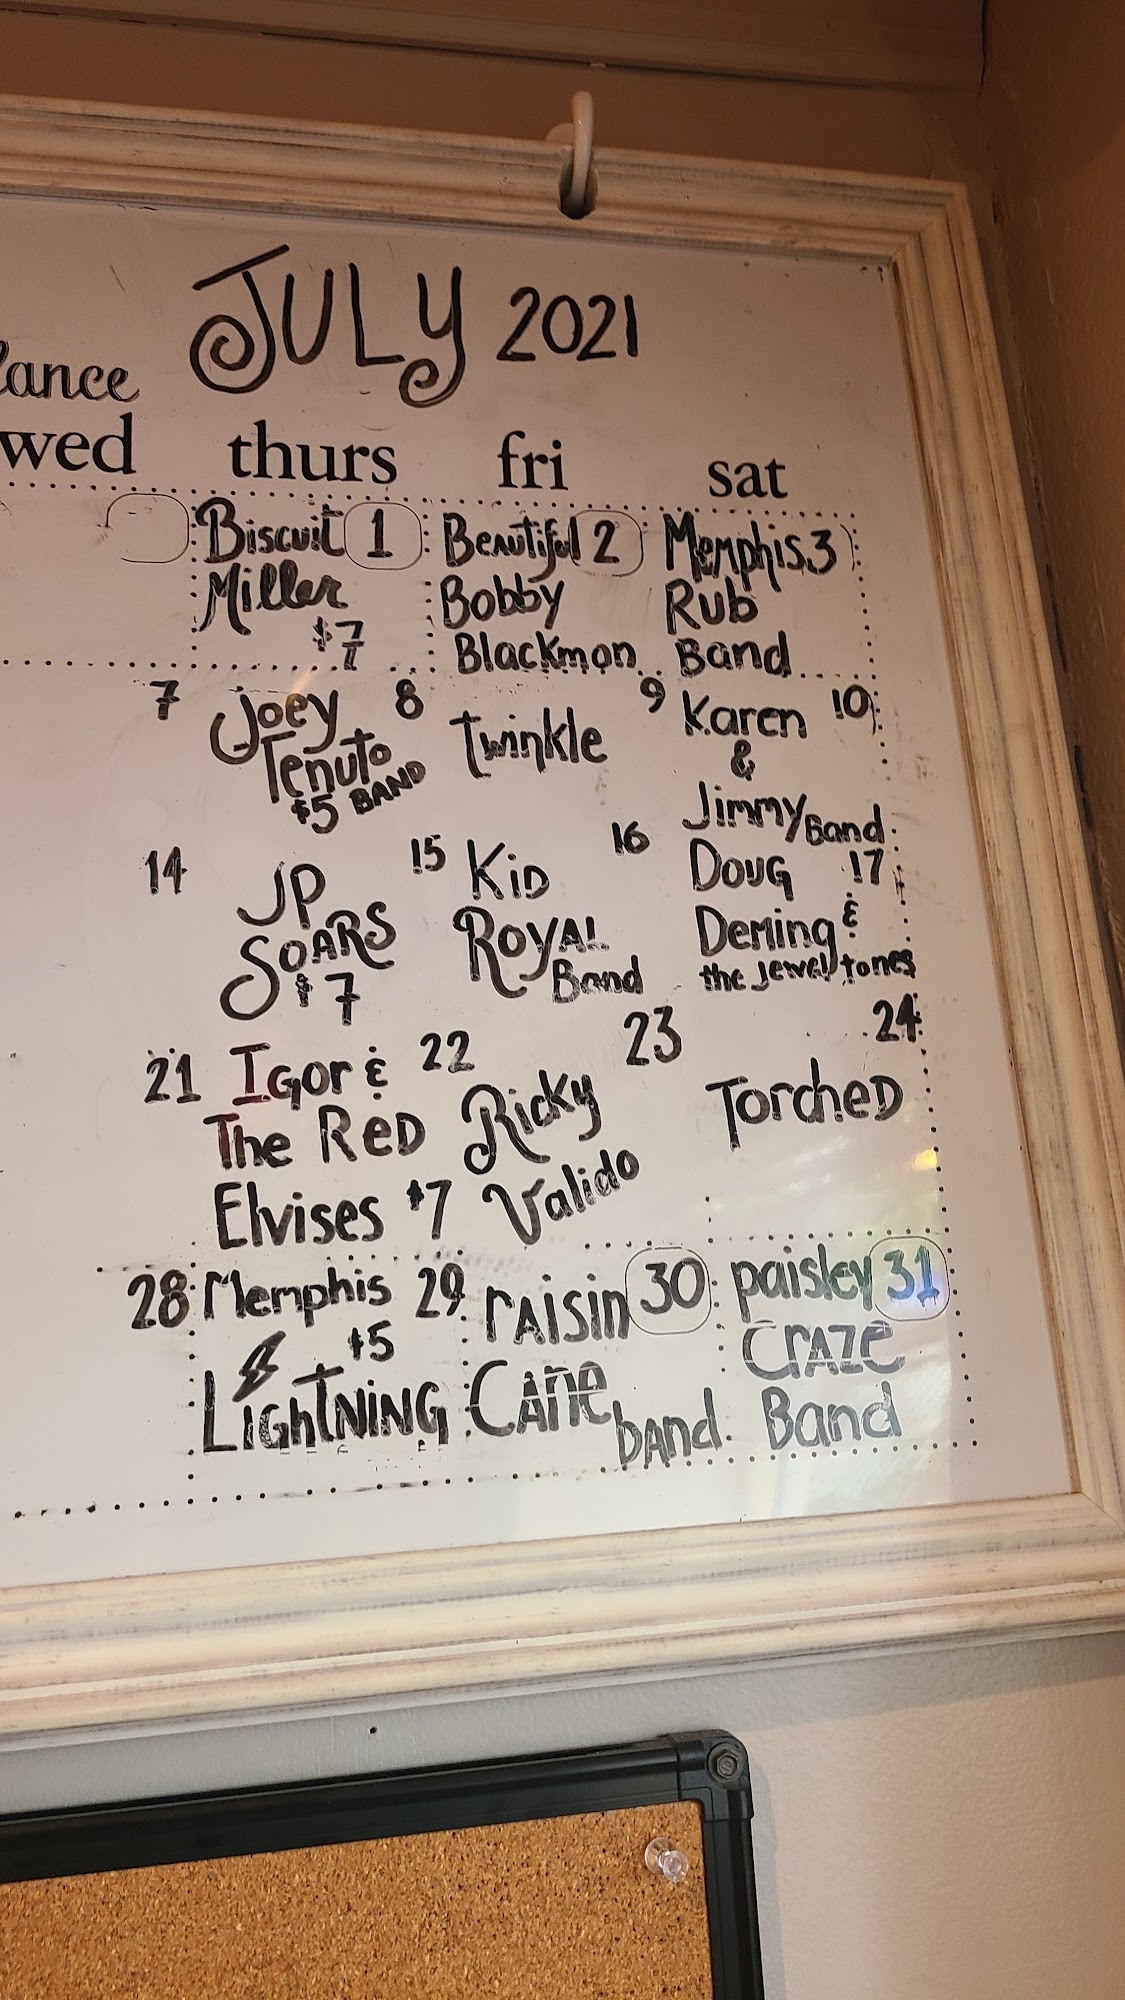 JULY 2021
lance
wed thurs fri sat
Biscuit 1 Beautiful 2 Memphis 3
Miller Bobby Rub
$7 Blackmon Band
7 Joey 8 Twinkle 9 Karen 10
Tenuto &
$5 BAND Jimmy Band
14 JP 15 Kid 16 Doug 17
SOARS ROYAL Deming &
$7 Band the Jewel tones
21 Igor & 22 Ricky 23 Torched 24
The Red Valido
Elvises $7
28 Memphis 29 raisin 30 paisley 31
$5 Craze
LIGHTNING Cane band Band